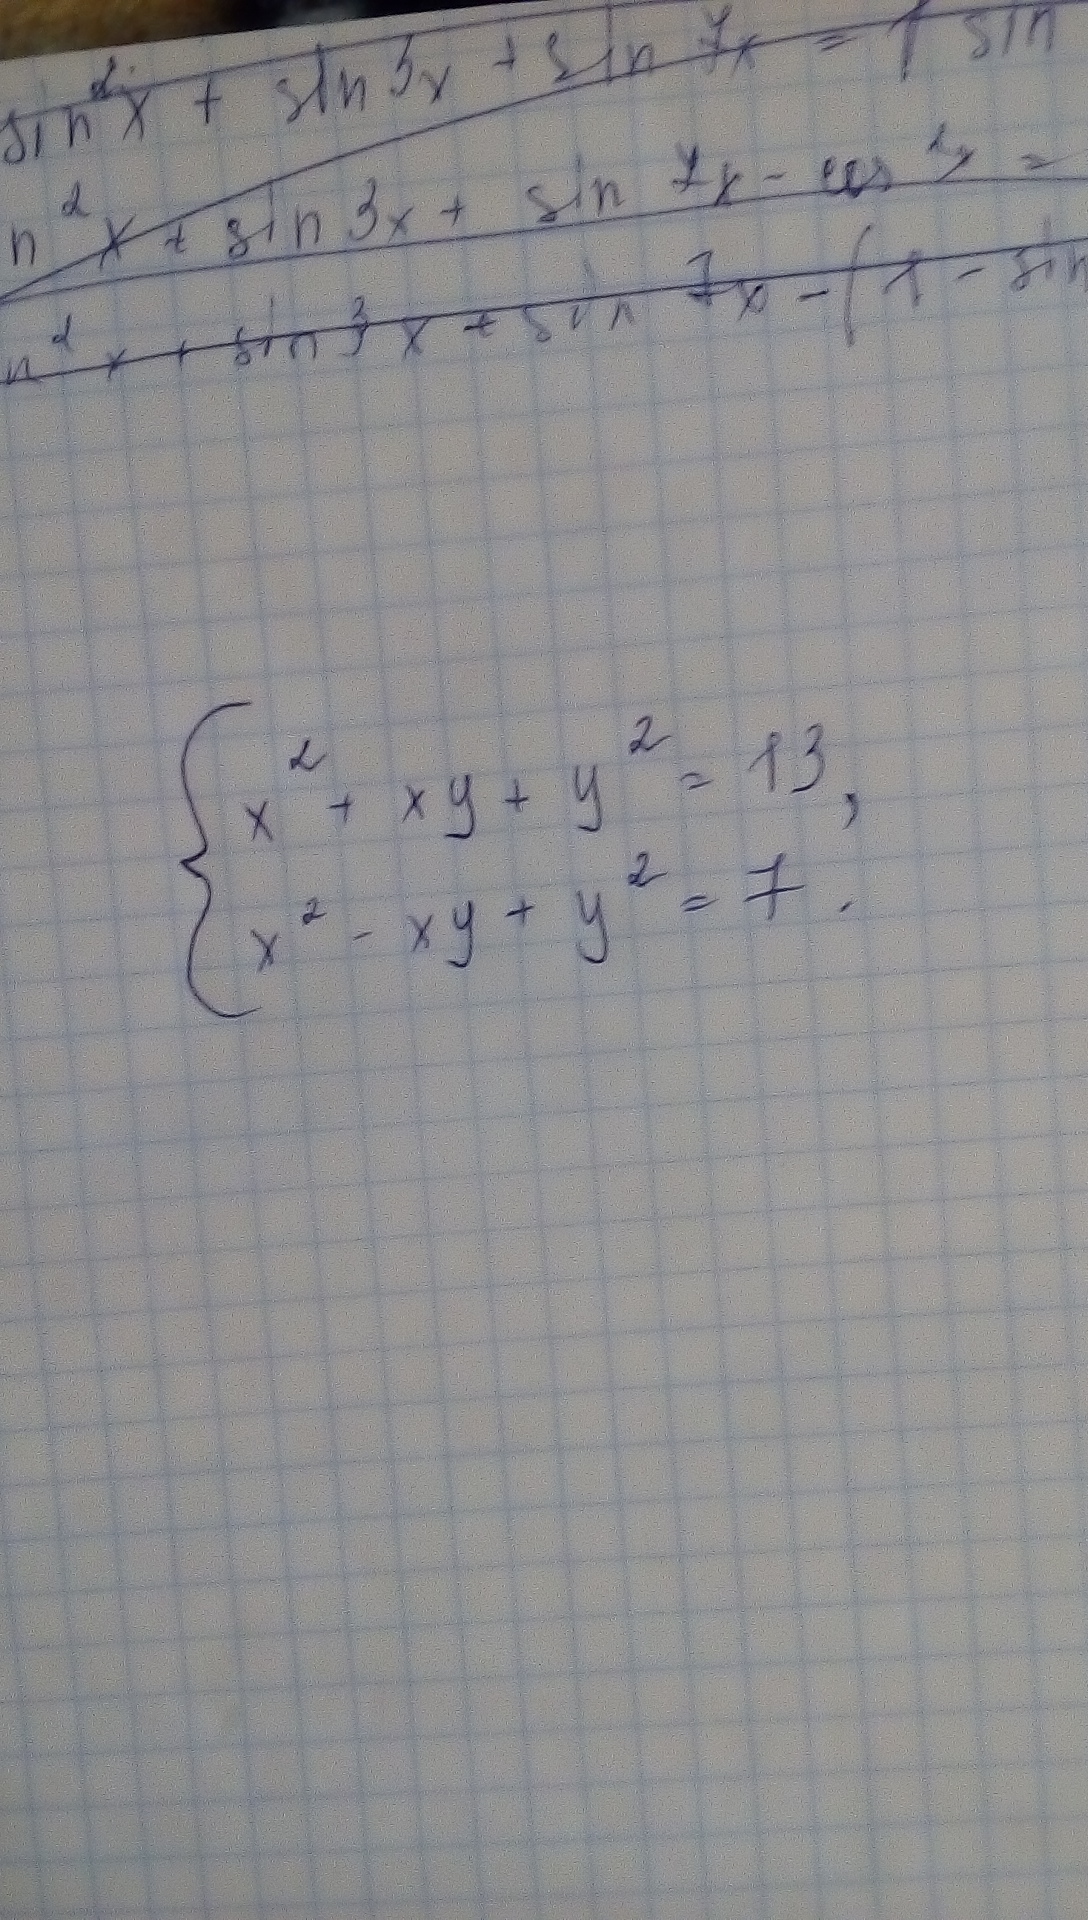 sin²x + sin 3x + sin 7x = 1 sin
n²x + sin 3x + sin 7x - cos²x =
n²x + sin 3x + sin 7x - (1 - sin
x² + xy + y² = 13,
x² - xy + y² = 7.